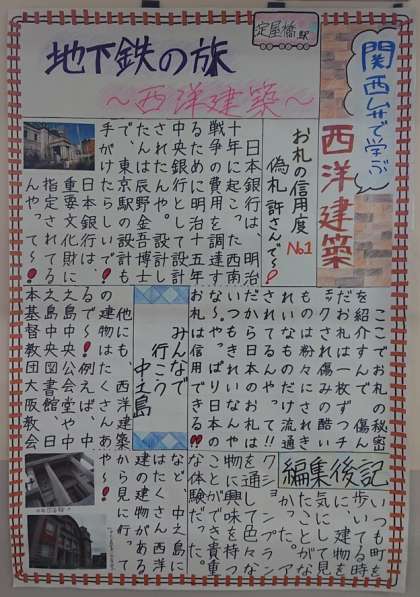 淀屋橋駅
地下鉄の旅
～西洋建築～
関西弁で学ぶ
西洋建築
お札の信用度No.1
偽札許さんで～!
日本銀行は、明治
十年に起こった西南
戦争の費用を調達す
るために明治十五年
中央銀行として設計
されたんや。設計し
たんは辰野金吾博士
で、東京駅の設計も
手がけたらしいで!
日本銀行は、
重要文化財に
指定されてる
んやって～!
ここでお札の秘密
を紹介すんで 傷ん
だお札は一枚ずつチェ
ックされ傷みの酷い
ものは粉々にされき
れいなものだけ流通
されてるんやって!!
だから日本のお札は
いつもきれいなんや
な～。やっぱり日本の
お札は信用できる!!
みんなで
行こう
中之島
他にも、西洋建築
の建物はたくさんあ
るで～!例えば、中
之島中央公会堂や中
之島中央図書館、日
本基督教団大阪教会
など 中之島に
はたくさん西洋
建の建物がある
から見に行って
や～!
編集後記
いつも町を
歩いてる時
に、建物を
気にして見
たことがな
かった。ア
クションプラン
を通して色々な
物に興味を持つ
ことができ貴重
な体験だった。